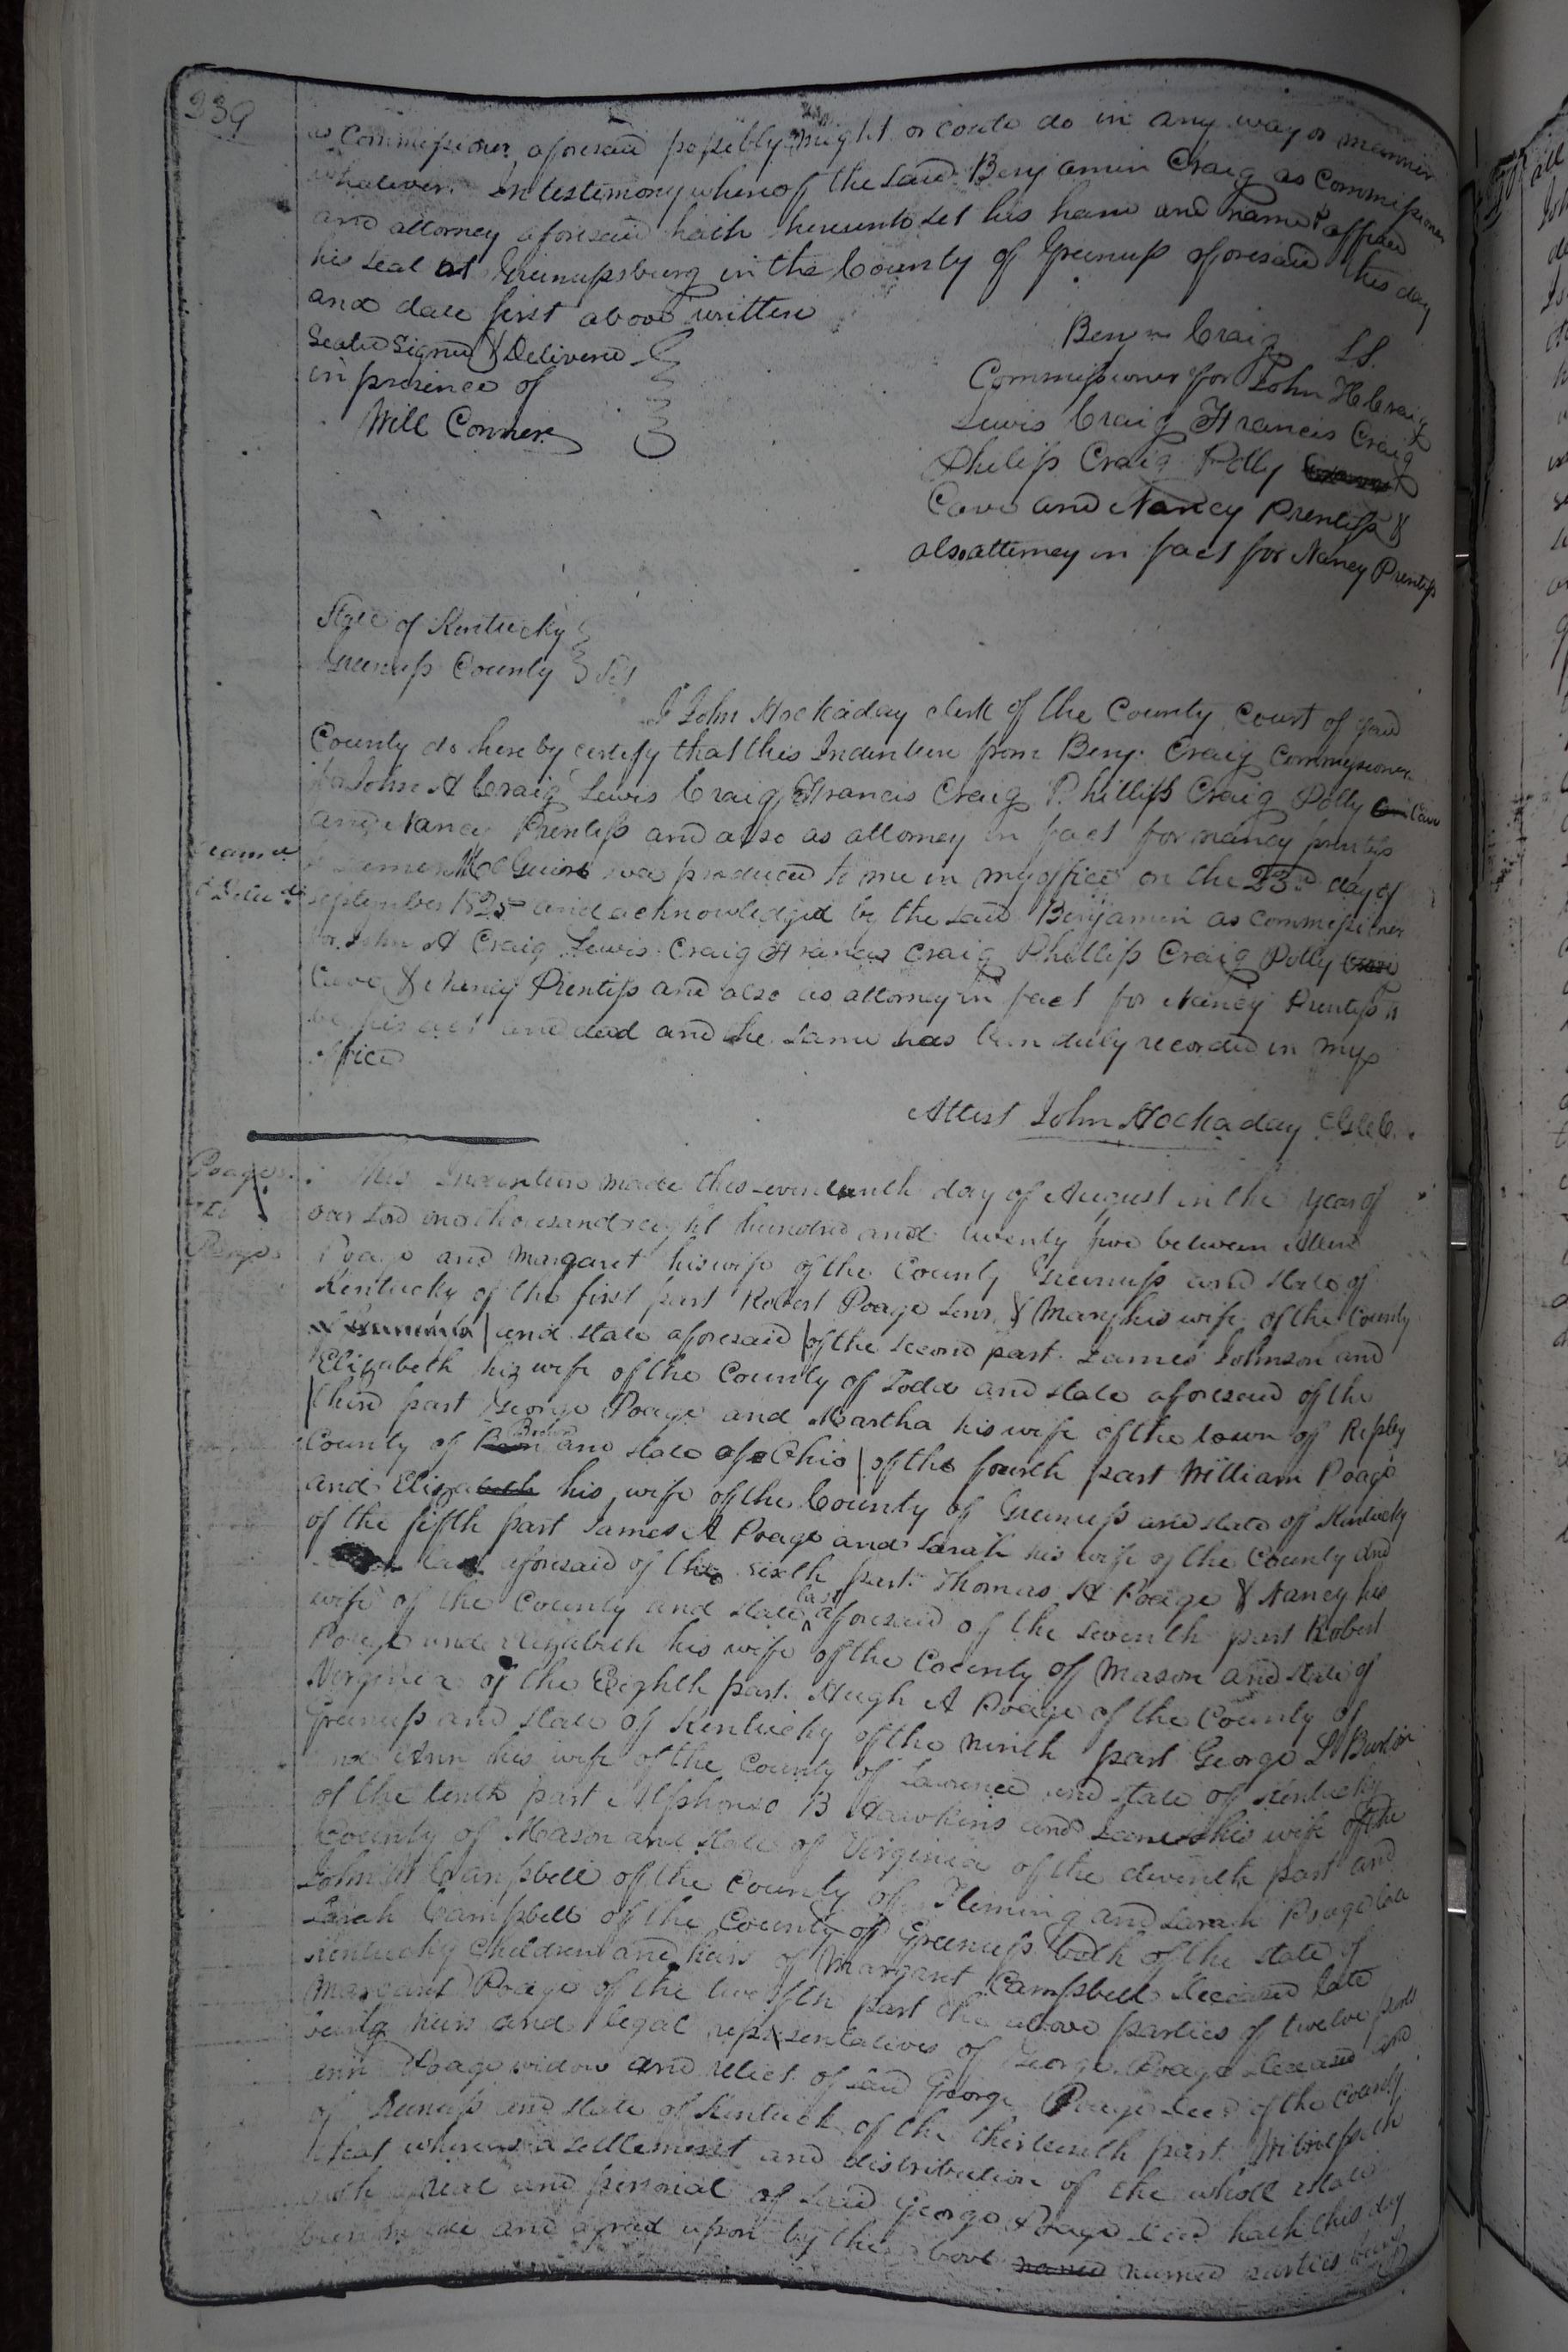 339
as Commissioner aforesaid possibly might or could do in any way or manner
whatever. In testimony whereof the said Benjamin Craig as Commissioner
and attorney aforesaid hath hereunto set his hand and name & affixed
his seal at Greenupsburg in the County of Greenup aforesaid this day
and date first above written
Sealed Signed & Delivered
in presence of
Will Conner
Benjn Craig LS.
Commissioner for John H Craig
Lewis Craig Francis Craig
Philip Craig Polly
Cave and Nancy Prentiss &
also attorney in fact for Nancy Prentiss
State of Kentucky
Greenup County Sct
I John Hockaday clerk of the County Court of said
County do here by certify that this Indenture from Benj. Craig Commissioner
for John A Craig Lewis Craig Francis Craig Phillip Craig Polly Cave
and Nancy Prentiss and also as attorney in fact for nancy prentiss
to James McGuire was produced to me in my office on the 23rd day of
september 1825 and acknowledged by the said Benjamin as commissioner
for John A Craig Lewis Craig Francis Craig Phillip Craig Polly
Cave & Nancy Prentiss and also as attorney in fact for Nancy Prentiss to
be his act and deed and the same has been duly recorded in my
office
Attest John Hockaday
Poage
to
Poage
This Indenture made this seventeenth day of August in the year of
our Lord one thousand eight hundred and twenty five between Allen
Poage and Margaret his wife of the County Greenup and state of
Kentucky of the first part Robert Poage Senr. & Mary his wife of the County
and state aforesaid of the second part. James Johnson and
Elizabeth his wife of the County of Todd and state aforesaid of the
third part George Poage and Martha his wife of the town of Ripley
County of Brown and state of Ohio of the fourth part William Poage
and Eliza his wife of the County of Greenup and state of Kentucky
of the fifth part James A Poage and Sarah his wife of the County and
last aforesaid of the sixth part. Thomas H Poage & Nancy his
wife of the County and state last aforesaid of the seventh part Robert
Poage and Elizabeth his wife of the County of Mason and state of
Virginia of the Eighth part. Hugh A Poage of the County of
Greenup and state of Kentucky of the ninth part George L Burton
and Ann his wife of the County of Lawrence and state of Kentucky
of the tenth part Alphonso B Hawkins and Jane his wife of the
County of Mason and state of Virginia of the eleventh part and
John Campbell of the County of Fleming and Sarah Poage late
Sarah Campbell of the County of Greenup both of the state of
Kentucky Children and heirs of Margaret Campbell deceased late
Margaret Poage of the twelfth part the above parties of twelve parts
being heirs and legal representatives of George Poage deceased and
Ann Poage widow and relict of said George Poage decd of the County
of Greenup and state of Kentucky of the thirteenth part. Witnesseth
that whereas a settlement and distribution of the whole estate
both real and personal of said George Poage decd hath this day
been made and agreed upon by the above named named parties